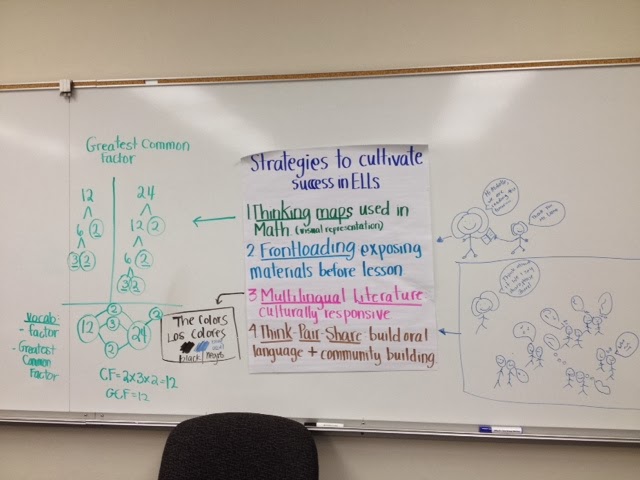 Greatest Common
Factor
12
24
6 2
12 2
3 2
6 2
3 2
Vocab:
- Factor
- Greatest
Common
Factor
2
2
12
3
24
2
CF = 2x3x2=12
GCF=12
The Colors
LOS COLORES
black negro
Strategies to cultivate
success in ELLs
1 Thinking maps used in
Math (visual representation)
2 Frontloading exposing
materials before lesson
3 Multilingual Literature
culturally responsive
4 Think-Pair-Share build oral
language + community building